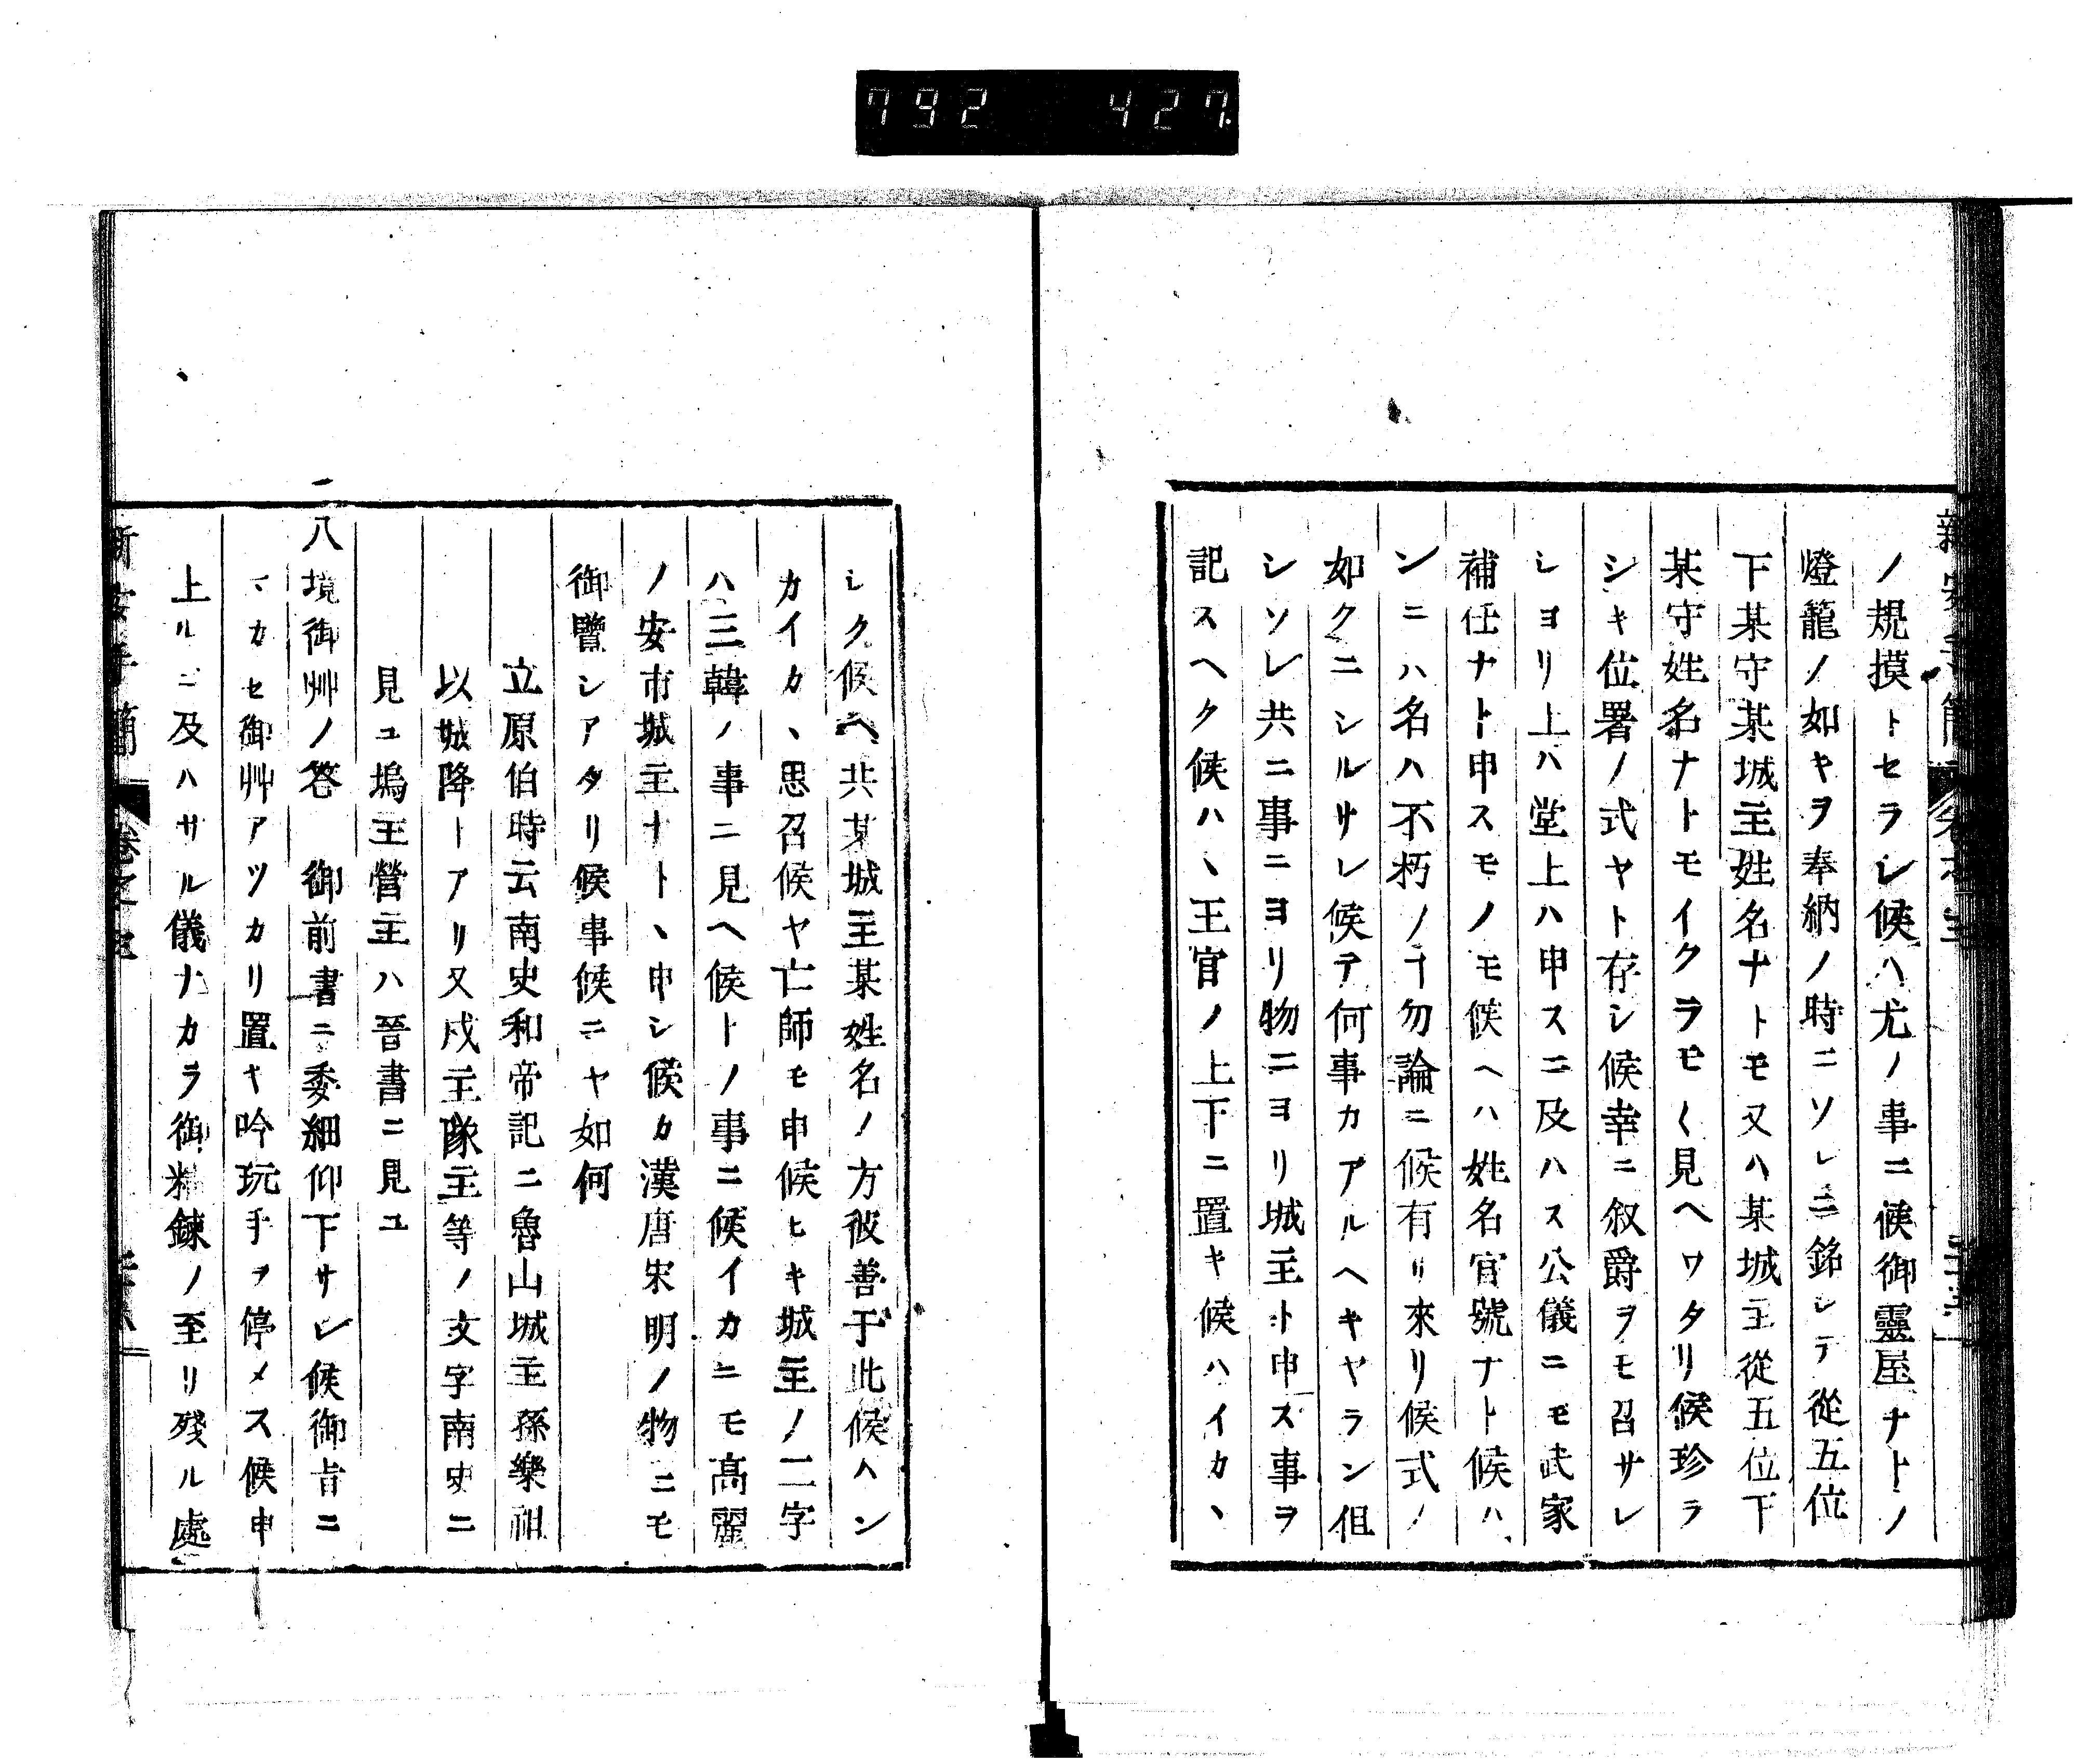 792 427
ノ規摸トセラレ候ハ尤ノ事ニ候御靈屋ナトノ
燈籠ノ如キヲ奉納ノ時ニソレニ銘シテ從五位
下某守某城主姓名ナトモ又ハ某城主從五位下
某守姓名ナトモイクラモ〱見ヘワタリ候珍ラ
シキ位署ノ式ヤト存シ候幸ニ叙爵ヲモ召サレ
シヨリ上ハ堂上ハ申スニ及ハス公儀ニモ武家
補任ナト申スモノモ候ヘハ姓名官號ナト候ハ
ンニハ名ハ不朽ノヿ勿論ニ候有リ來リ候式ノ
如クニシルサレ候テ何事カアルヘキヤラン但
シソレ共ニ事ニヨリ物ニヨリ城主ト申ス事ヲ
記スヘク候ハヽ王官ノ上下ニ置キ候ハイカヽ
シク候ヘ共某城主某姓名ノ方彼善于此候ハン
カイカヽ思召候ヤ亡師モ申候ヒキ城主ノ二字
ハ三韓ノ事ニ見ヘ候トノ事ニ候イカニモ髙麗
ノ安市城主ナトヽ申シ候カ漢唐宋明ノ物ニモ
御覽シアタリ候事候ニヤ如何
立原伯時云南史和帝記ニ魯山城主孫樂祖
以城降トアリ又戍主隊主等ノ文字南史ニ
見ユ塢主營主ハ晉書ニ見ユ
一八境御艸ノ答 御前書ニ委細仰下サレ候御旨ニ
マカセ御艸アツカリ置キ吟玩手ヲ停メス候申
上ルニ及ハサル儀ナカラ御精鍊ノ至リ殘ル處
新安手簡 卷之